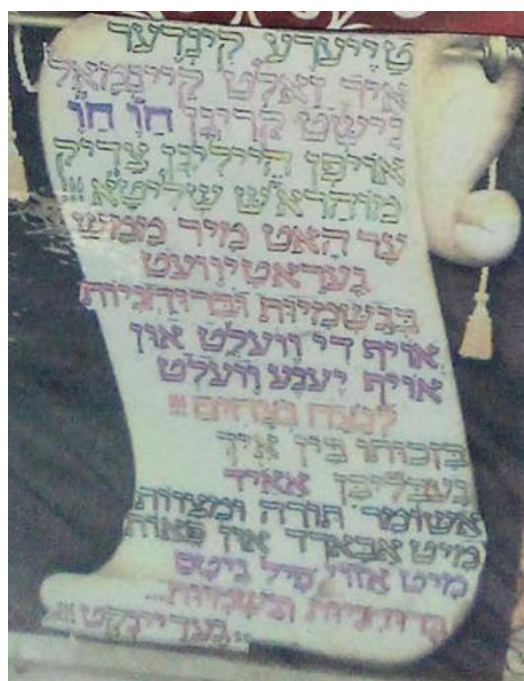 טייערע קינדער
איר זאלט קיינמאל
נישט קריגן חו חו
אויפן הייליגן צדיק
מוהרא"ש שליטא!!!
ער האט מיר ממש
געראטיוועט
בגשמיות וברוחניות
אויף די וועלט און
אויף יענע וועלט
לנצח נצחים!!!
בזכותו בין איך
געבליבן אאיד
אשומר תורה ומצוות
מיט אבארד און פאות
מיט אזוי פיל גוטס
ברוחניות וגשמיות...
געדיינקט!!!